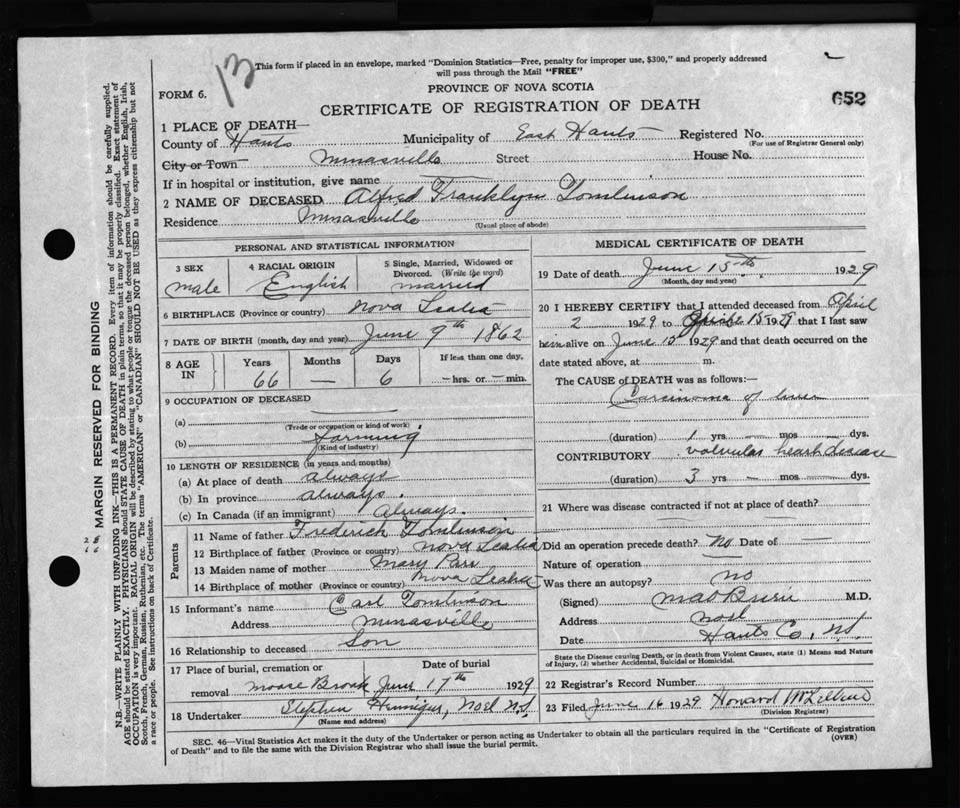 13
This form if placed in an envelope, marked "Dominion Statistics—Free, penalty for improper use, $300," and properly addressed
will pass through the Mail "FREE"
FORM 6.
PROVINCE OF NOVA SCOTIA
CERTIFICATE OF REGISTRATION OF DEATH
652
1 PLACE OF DEATH—
County of Hants Municipality of East Hants Registered No.
(For use of Registrar General only)
City or Town Minasville Street House No.
If in hospital or institution, give name
2 NAME OF DECEASED Alfred Franklyn Tomlinson
Residence Minasville
(Usual place of abode)
PERSONAL AND STATISTICAL INFORMATION
3 SEX 4 RACIAL ORIGIN 5 Single, Married, Widowed or
Divorced. (Write the word)
male English married
6 BIRTHPLACE (Province or country) Nova Scotia
7 DATE OF BIRTH (month, day and year) June 9th 1862
8 AGE IN Years Months Days If less than one day,
66 — 6 — hrs. or — min.
9 OCCUPATION OF DECEASED
(a)
(Trade or occupation or kind of work)
(b) farming
(Kind of industry)
10 LENGTH OF RESIDENCE (in years and months)
(a) At place of death always
(b) In province always.
(c) In Canada (if an immigrant) Always.
Parents
11 Name of father Frederick Tomlinson
12 Birthplace of father (Province or country) Nova Scotia
13 Maiden name of mother Mary Parr
14 Birthplace of mother (Province or country) Nova Scotia
15 Informant's name Carl Tomlinson
Address Minasville
16 Relationship to deceased Son
17 Place of burial, cremation or Date of burial
removal Moose Brook June 17th 1929
18 Undertaker Stephen Hennigar, Noel N.S.
(Name and address)
MEDICAL CERTIFICATE OF DEATH
19 Date of death June 15th 1929
(Month, day and year)
20 I HEREBY CERTIFY that I attended deceased from April
2 1929 to June 15 1929 that I last saw
him alive on June 15 1929 and that death occurred on the
date stated above, at m.
The CAUSE OF DEATH was as follows:—
Carcinoma of liver
(duration) 1 yrs — mos — dys.
CONTRIBUTORY valvular heart disease
(duration) 3 yrs — mos — dys.
21 Where was disease contracted if not at place of death?
Did an operation precede death? No Date of —
Nature of operation
Was there an autopsy? no
(Signed) M.D.
Address Noel
Date Hants Co, NS
State the Disease causing Death, or in death from Violent Causes, state (1) Means and Nature
of Injury, (2) whether Accidental, Suicidal or Homicidal.
22 Registrar's Record Number
23 Filed June 16 1929 Howard
(Division Registrar)
SEC. 46—Vital Statistics Act makes it the duty of the Undertaker or person acting as Undertaker to obtain all the particulars required in the "Certificate of Registration
of Death" and to file the same with the Division Registrar who shall issue the burial permit.
(OVER)
MARGIN RESERVED FOR BINDING
N.B.—WRITE PLAINLY WITH UNFADING INK—THIS IS A PERMANENT RECORD. Every item of information should be carefully supplied.
AGE should be stated EXACTLY. PHYSICIANS should STATE CAUSE OF DEATH in plain terms, so that it may be properly classified. Exact statement of
OCCUPATION is very important. RACIAL ORIGIN will be described by stating to what people or tongue a deceased person belonged, whether English, Irish,
Scotch, French, German, Russian, Ruthenian, etc. The terms "AMERICAN" or "CANADIAN" SHOULD NOT BE USED as they express citizenship but not
a race or people. See instructions on back of Certificate.